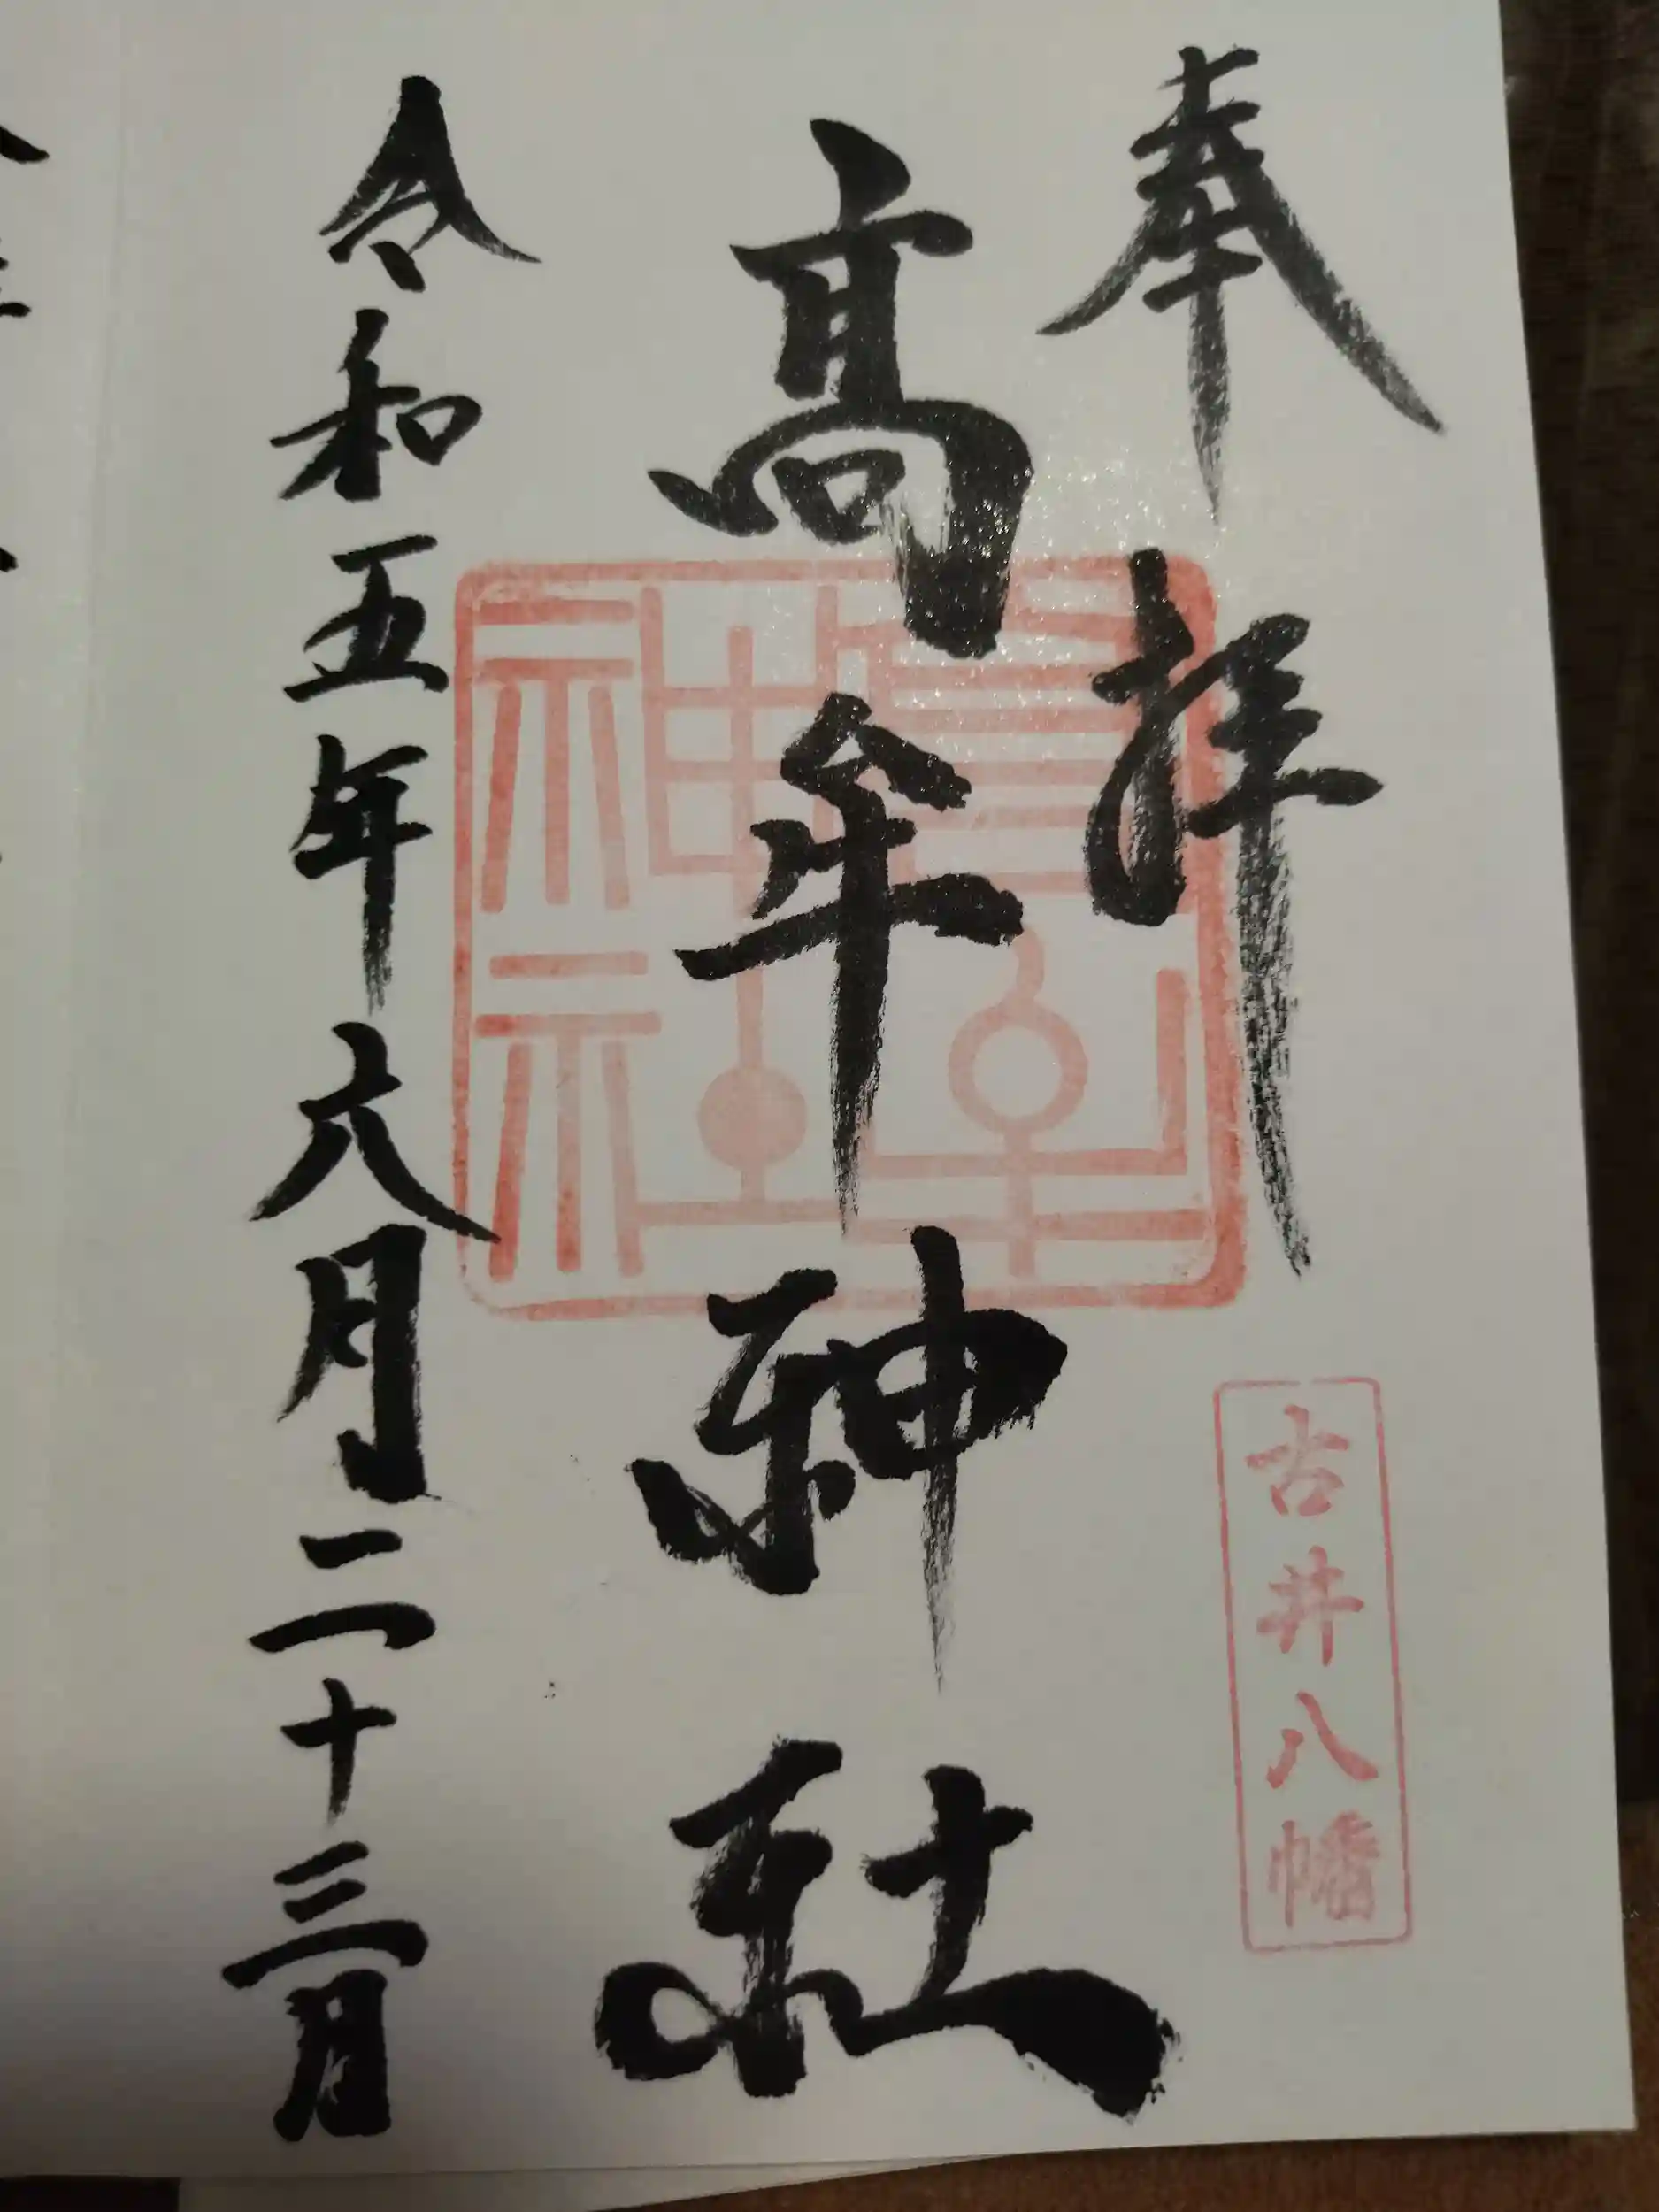 奉拝
古井八幡
高牟神社
高牟神社
令和五年六月二十三日